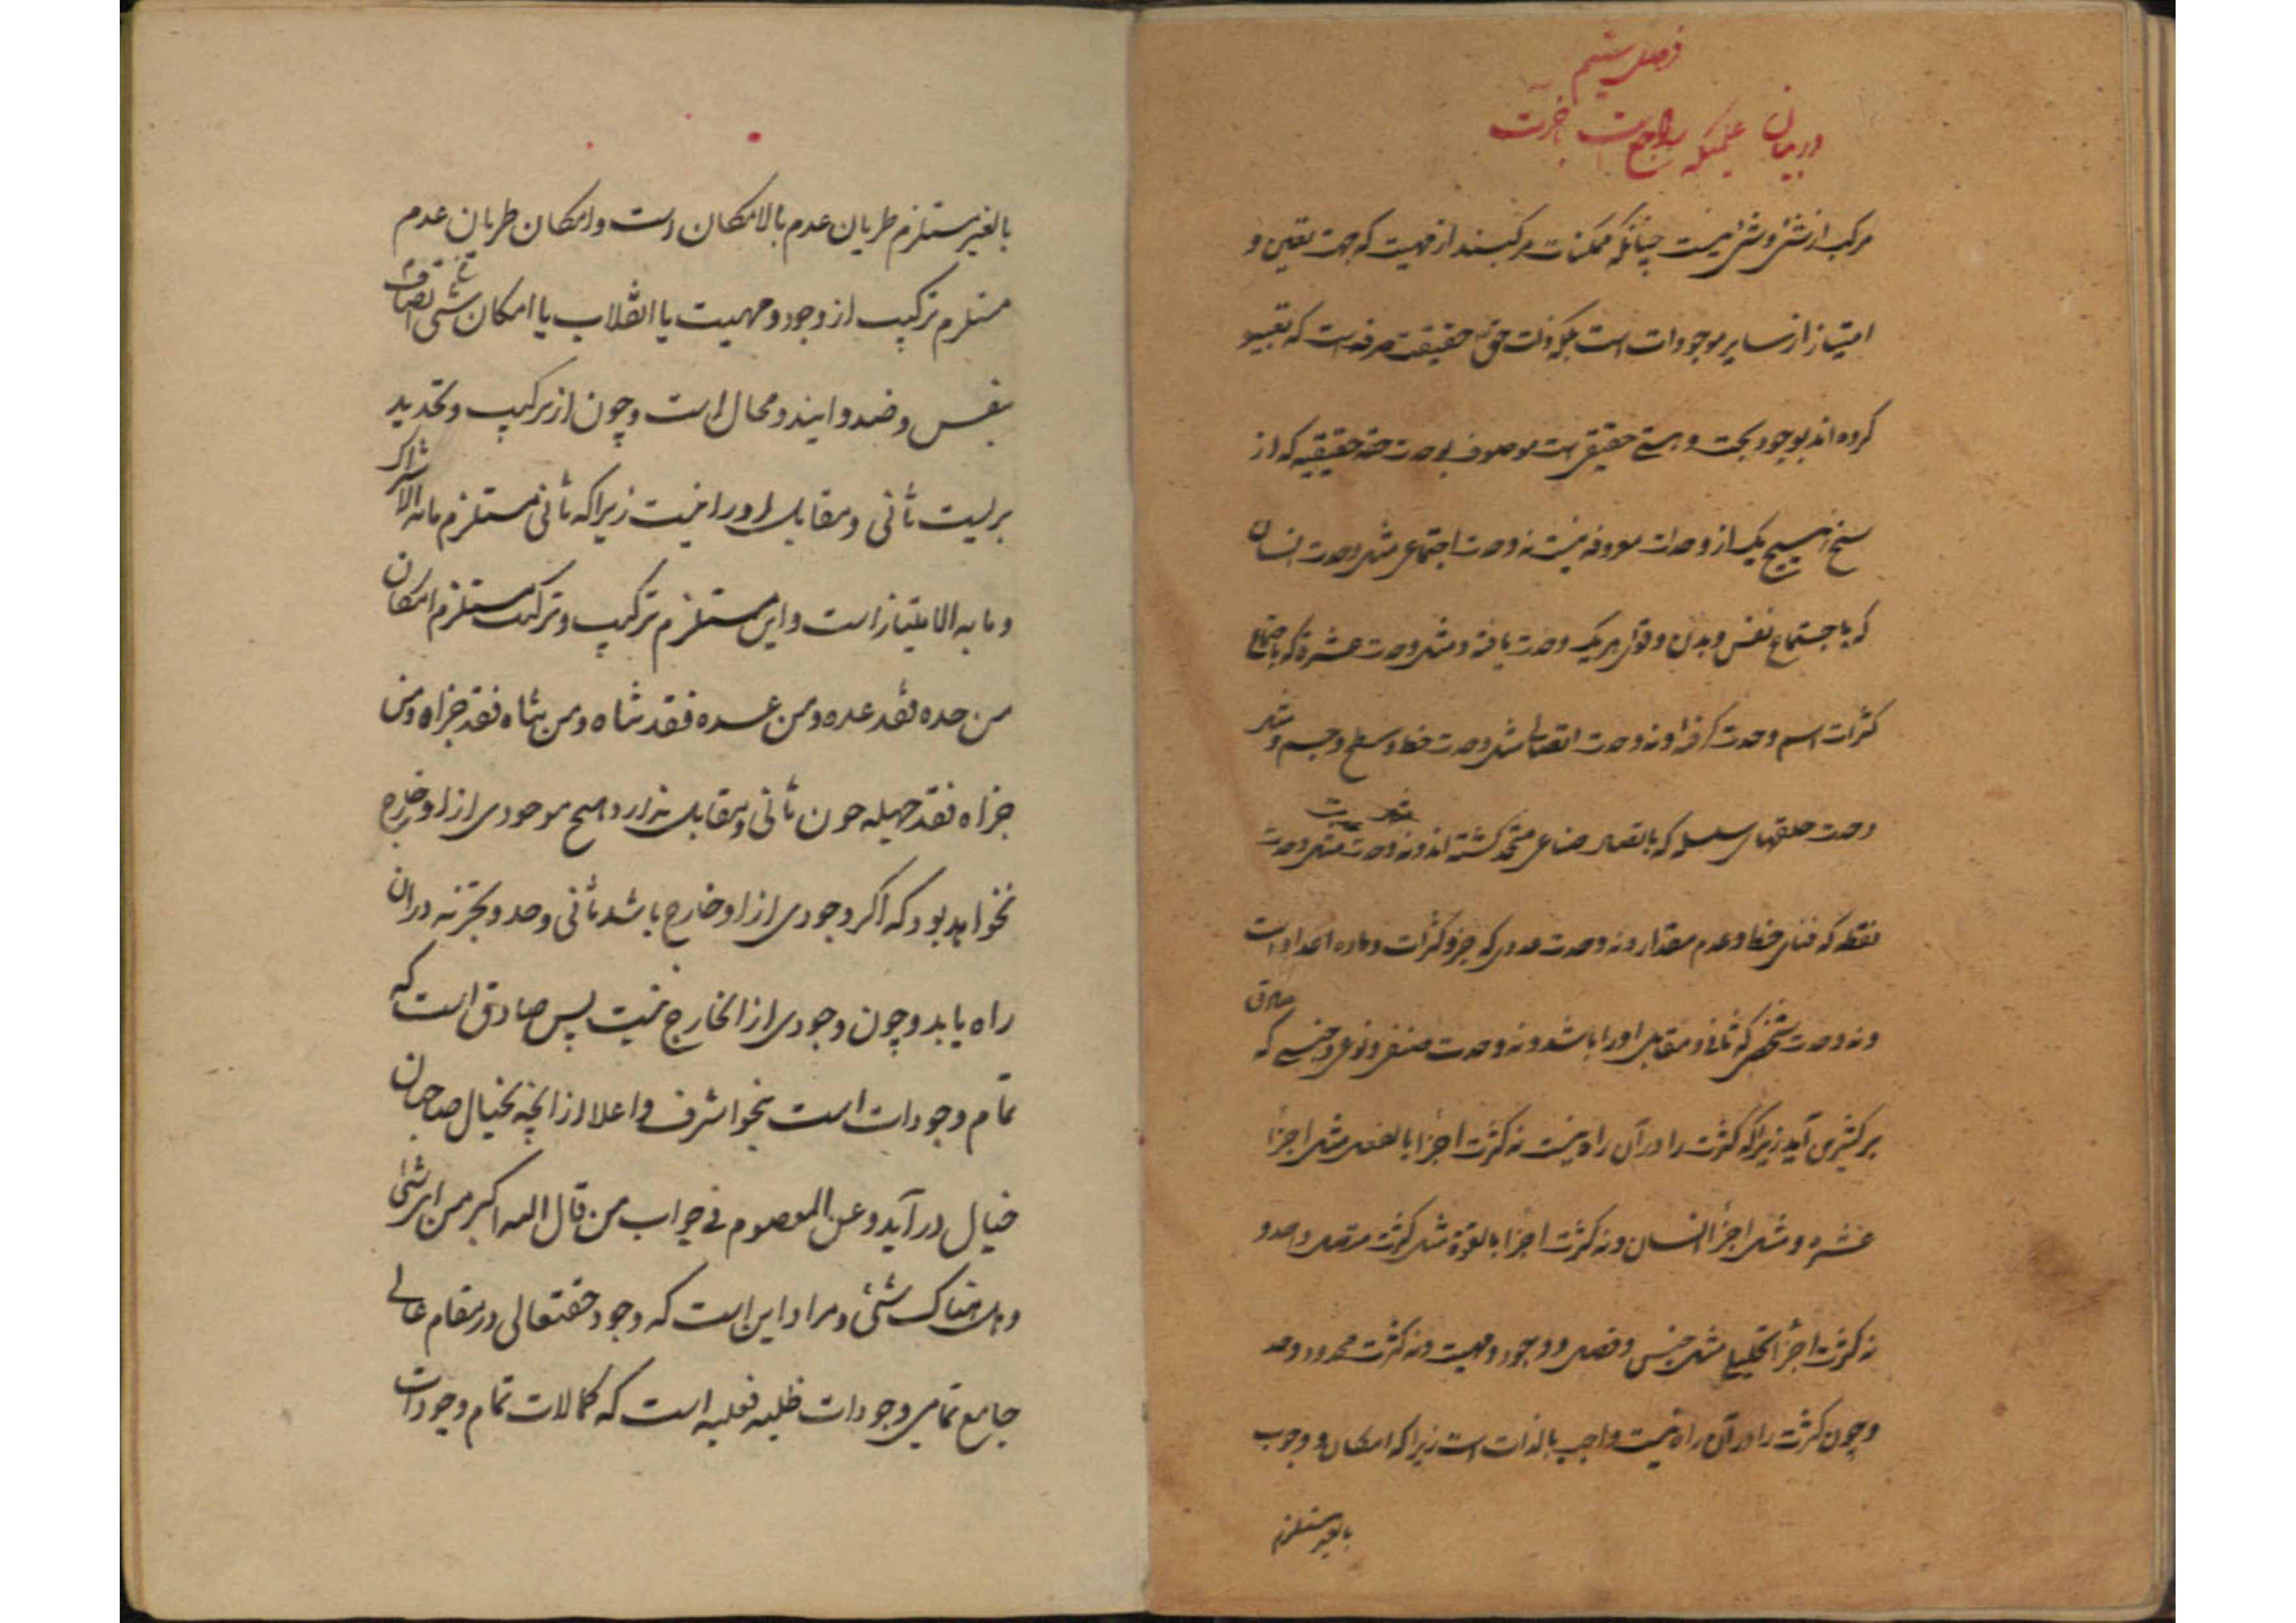 فصل ششم
در بیان علمیکه راجع است بآخرت
مرکب از شئ و شئ نیست چنانکه ممکنات مرکبند از مهیت که جهت تعین و
امتیاز از سایر موجودات است بلکه ذات حق حقیقت صرفه است که تعبیر
کرده اند بوجود بحت و هستی حقیقی است موصوف بوحدت حقه حقیقیه که از
سنخ هیچ یک از وحدات معروفه نیست نه وحدت اجتماعی مثل وحدت انسان
که باجتماع نفس و بدن و قوای هر یک وحدت یافته و مثل وحدت عشره که باجتماع
کثرات اسم وحدت گرفته و نه وحدت اتصالی مثل وحدت خط و سطح و جسم و مثل
وحدت حلقهای سلسله که باتصال صناعی متحد گشته اند و نه وحدت مثل وحدت
نقطه که فنای خط و عدم مقدار و نه وحدت عددی که جزو کثرات و ماده اعداد است
و نه وحدت شخصی که ثانی و مقابل او را باشد و نه وحدت صنفی و نوعی و جنسی که صادق
بر کثیری آید زیرا که کثرت را در آن راه نیست نه کثرت اجزا بالفعل مثل اجزأ
عشره و مثل اجزأ انسان و نه کثرت اجزا بالقوة مثل کثرت متصل واحد و
نه کثرت اجزأ تحلیلی مثل جنس و فصل و وجود و مهیت و نه کثرت محدود و حد
و چون کثرت را در آن راه نیست واجب بالذات است زیرا که امکان و وجوب
بالغیر مستلزم
بالغیر مستلزم طریان عدم بالامکان است و امکان طریان عدم
مستلزم ترکیب از وجود و مهیت یا انقلاب یا امکان اتصاف شئی
بنفس و ضد و ایندو محال است و چون از ترکیب و تحدید
بریست ثانی و مقابل او را نیست زیرا که ثانی مستلزم مابه الاشتراک
و ما به الامتیاز است و این مستلزم ترکیب و ترکیب مستلزم امکان
من حده فقد عده و من عده فقد ثناه و من ثناه فقد جزاه و من
جزاه فقد جهله چون ثانی و مقابل ندارد هیچ موجودی از او خارج
نخواهد بود که اگر وجودی از او خارج باشد ثانی و حد و تجزیه در ان
راه یابد و چون وجودی از ان خارج نیست پس صادق است که
تمام وجودات است بنحو اشرف و اعلا از انچه بخیال صاحبان
خیال در آید و عن المعصوم فی جواب من قال الله اکبر من ای شئی
و هل هناک شئی و مراد این است که وجود حقتعالی در مقام عالی
جامع تمامی وجودات ظلیه فعلیه است که کمالات تمام وجودات